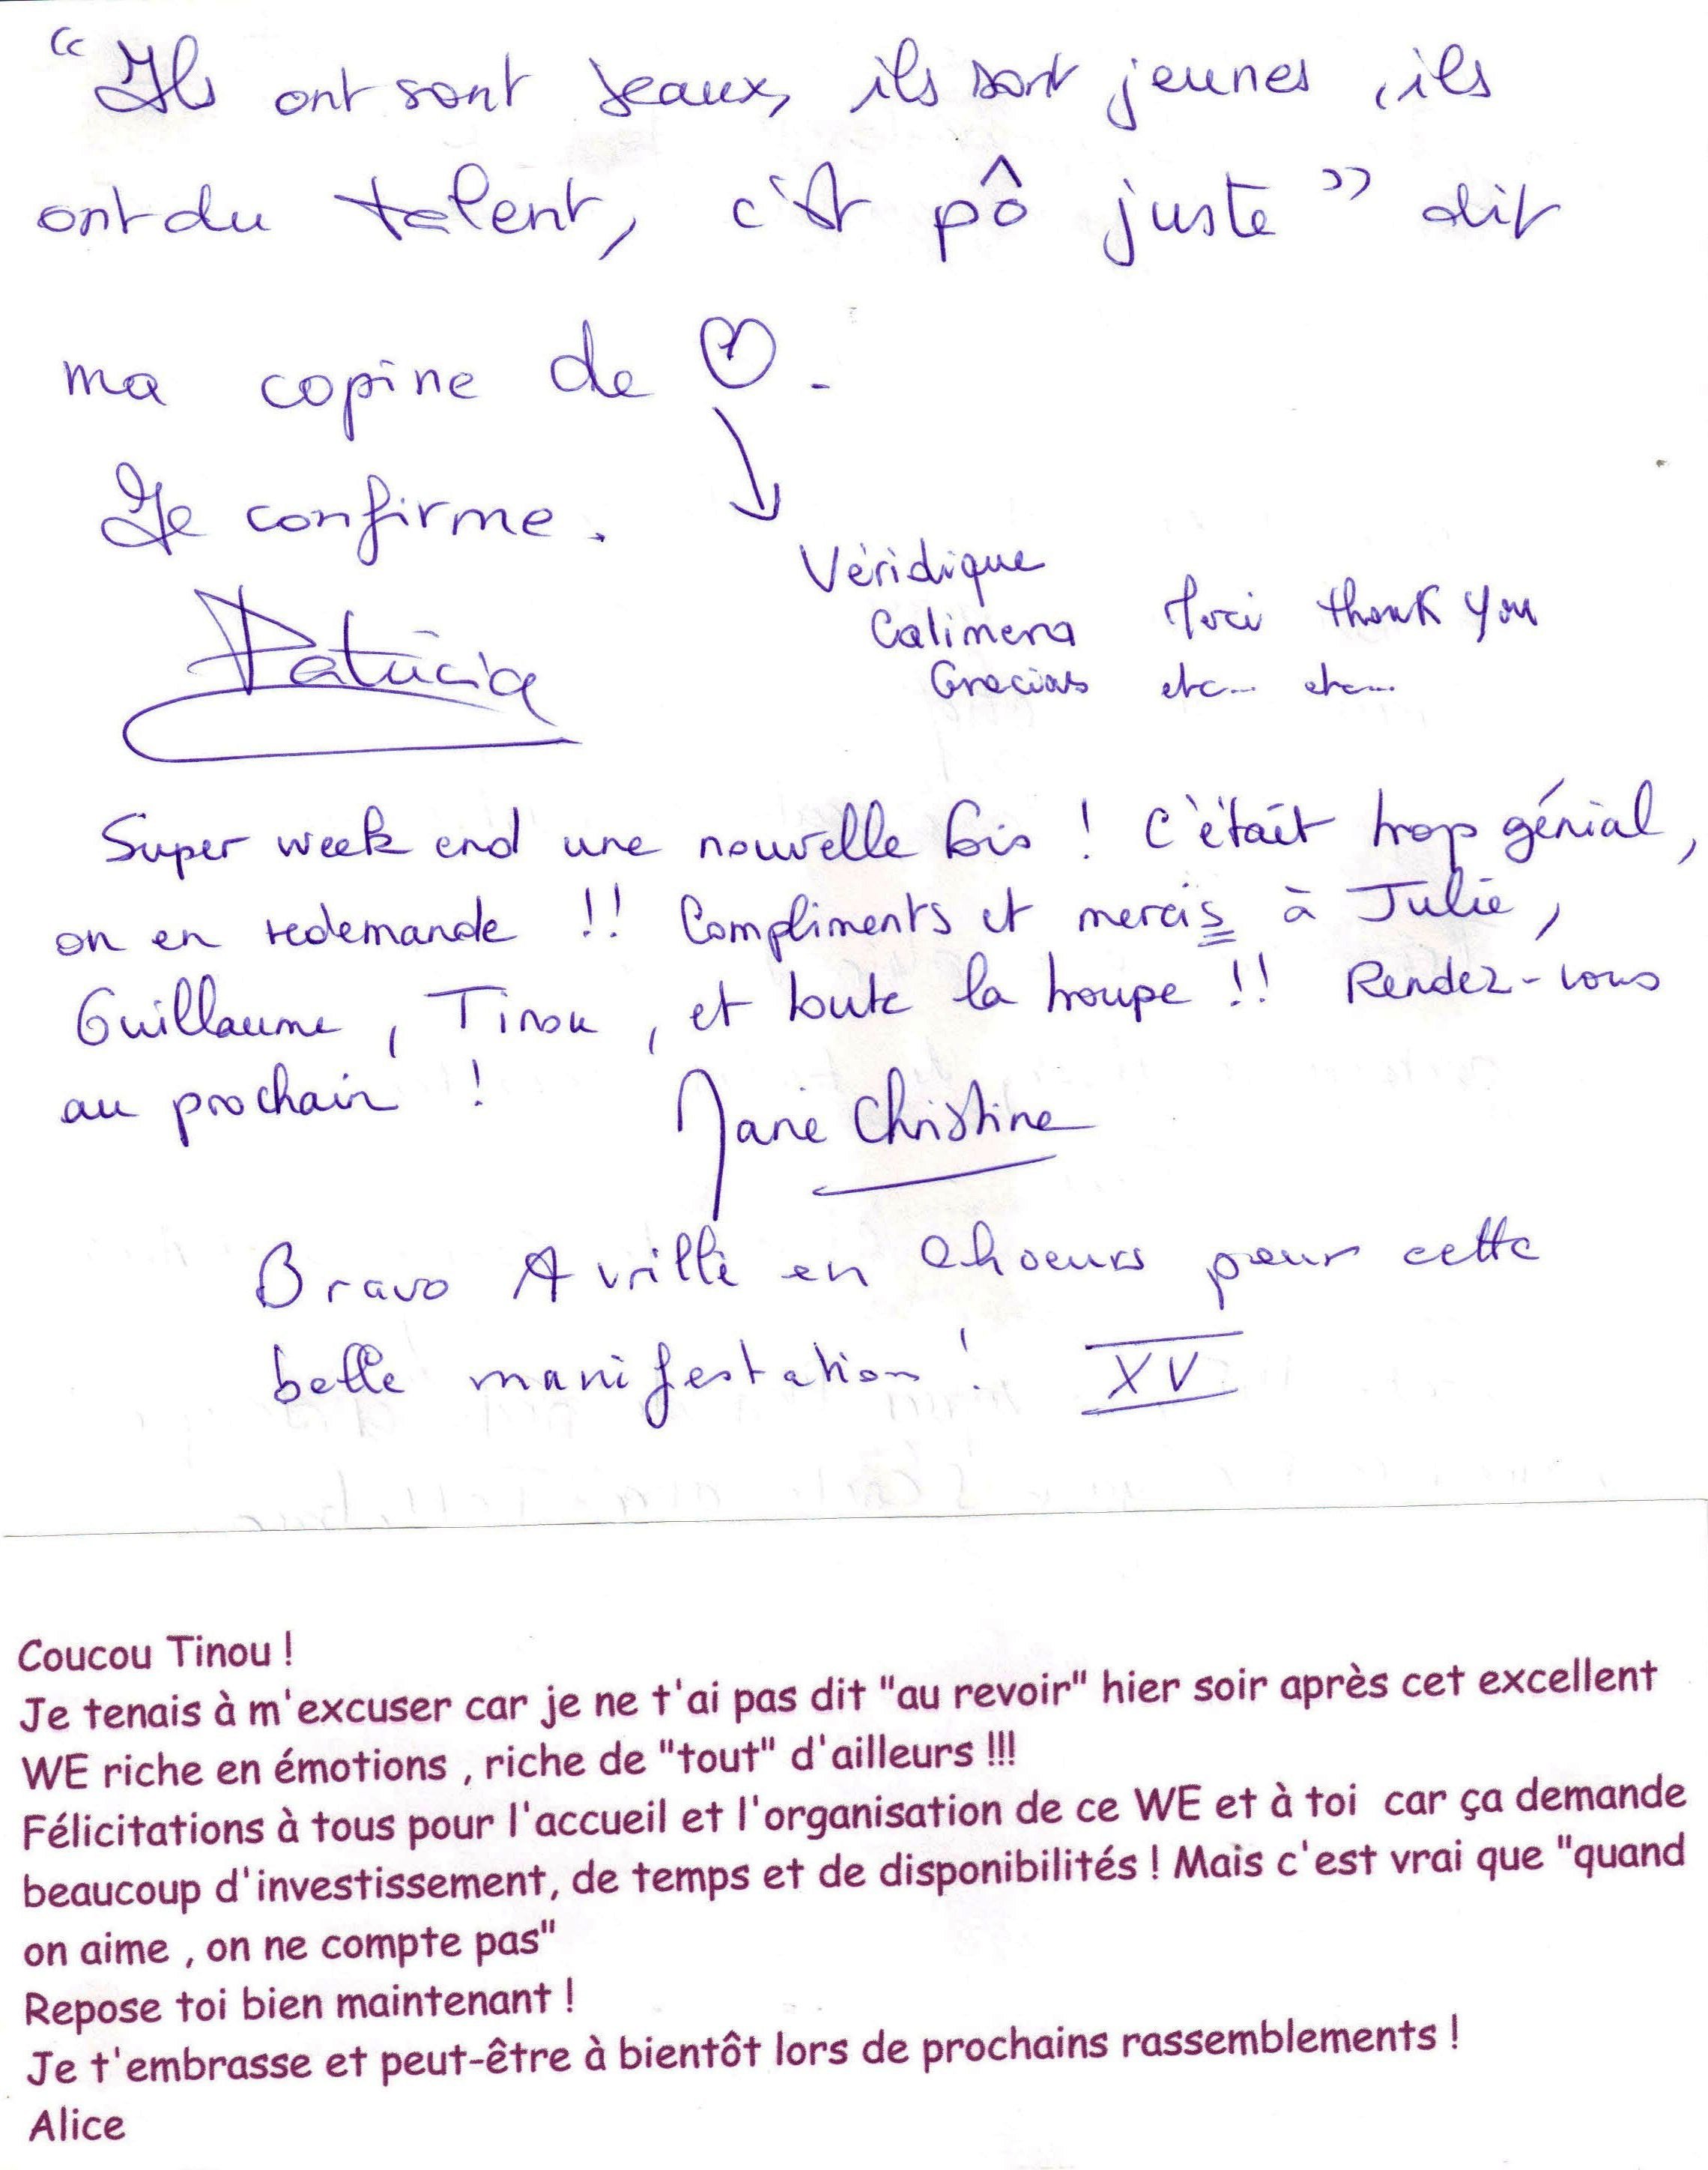 “Ils ont sont beaux, ils sont jeunes, ils
ont du talent, c'est pô juste” dit
ma copine de ♡.
Je confirme.
Patricia
Véridique
Calimera Merci thank you
Gracias etc... etc...
Super week end une nouvelle fois ! C'était trop génial,
on en redemande !! Compliments et mercis à Julie,
Guillaume, Tinou, et toute la troupe !! Rendez-vous
au prochain !
Marie Christine
Bravo Avrillé en Choeurs pour cette
belle manifestation ! XV
Coucou Tinou !
Je tenais à m'excuser car je ne t'ai pas dit "au revoir" hier soir après cet excellent
WE riche en émotions , riche de "tout" d'ailleurs !!!
Félicitations à tous pour l'accueil et l'organisation de ce WE et à toi car ça demande
beaucoup d'investissement, de temps et de disponibilités ! Mais c'est vrai que "quand
on aime , on ne compte pas"
Repose toi bien maintenant !
Je t'embrasse et peut-être à bientôt lors de prochains rassemblements !
Alice